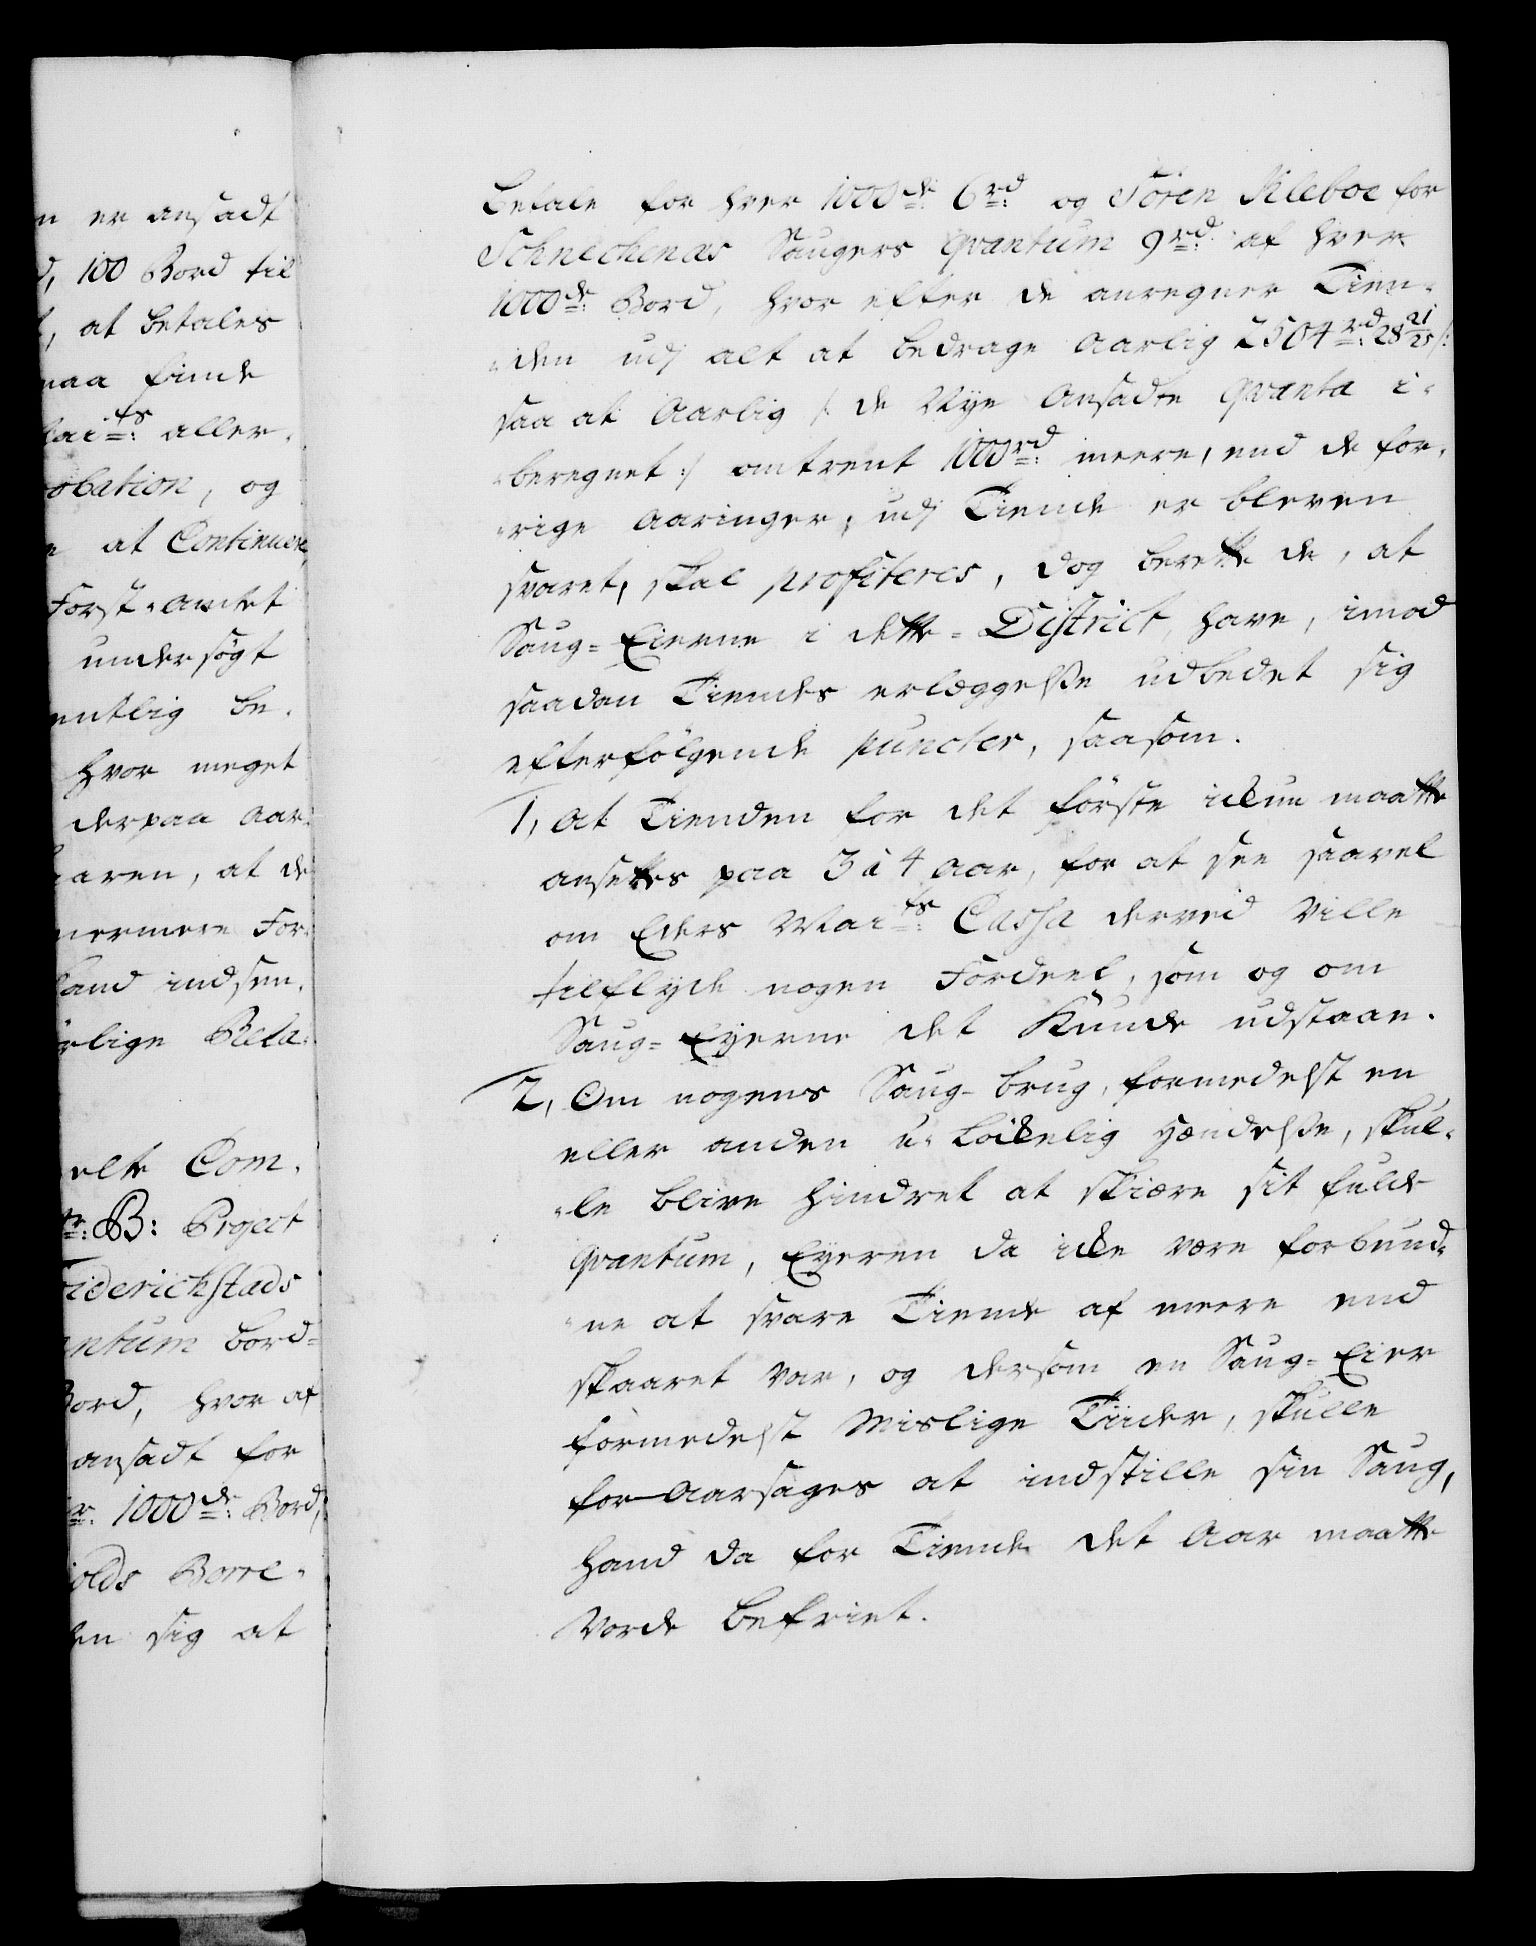 n er ansadt
d, 100 Bord til
t, at betales
maa finde
Mai​ts: aller-
obation, og
e at Continuere,
Forst-amtet
undersögt
entlig be-
hvor meget
derpaa aar-
aaren, at de
nermere For-
land indsen-
rlige Rela-
elte Com-
tr: B: Project
riderichstads
antum bord-
Bord, hvor af
ansadt for
er 1000de: Bord,
olds Borre-
den sig at
betale for hver 1000de: 6rd: og Sören Kleboe for
Schnechenæs Saugers Qvantum 9rd: af hver
1000de: Bord, hvor efter de anregner Tien-
-den udj alt at bedrage Aarlig 2504rd: 28 21/25 s:
saa at Aarlig /: de Nye Ansadte Qvanta i-
-beregnet :/ omtrent 1000rd: meere, end de for-
-rige Aaringer, udj Tiende er bleven
svaret, skal profiteres, dog berette de, at
Saug-Eierne i dette District, have, imod
saadan Tiendes erlæggelse udbedet sig
efterfölgende puncter, saasom.
1, At Tienden for det förste ickun maatte
ansettes paa 3 à 4 Aar, for at see saavel
om Eders Maits: Cassa derved Ville
tilflyde nogen Fordeel, som og om
Saug-Eyerne det Kunde udstaae.
2, Om nogens Saug-brug, formedelst en
eller anden u-löckelig hændelse, skul-
-le blive hindret at skiære sit fulde
Qvantum, Eyeren da icke være forbund-
-ne at svare Tiende af meere end
skaaret var, og dersom en Saug-Eier
formedelst Mislige Tiider, skulle
for-Aarsages at indstille sin Saug,
hand da for Tiende det Aar maatte
Vorde befriet.